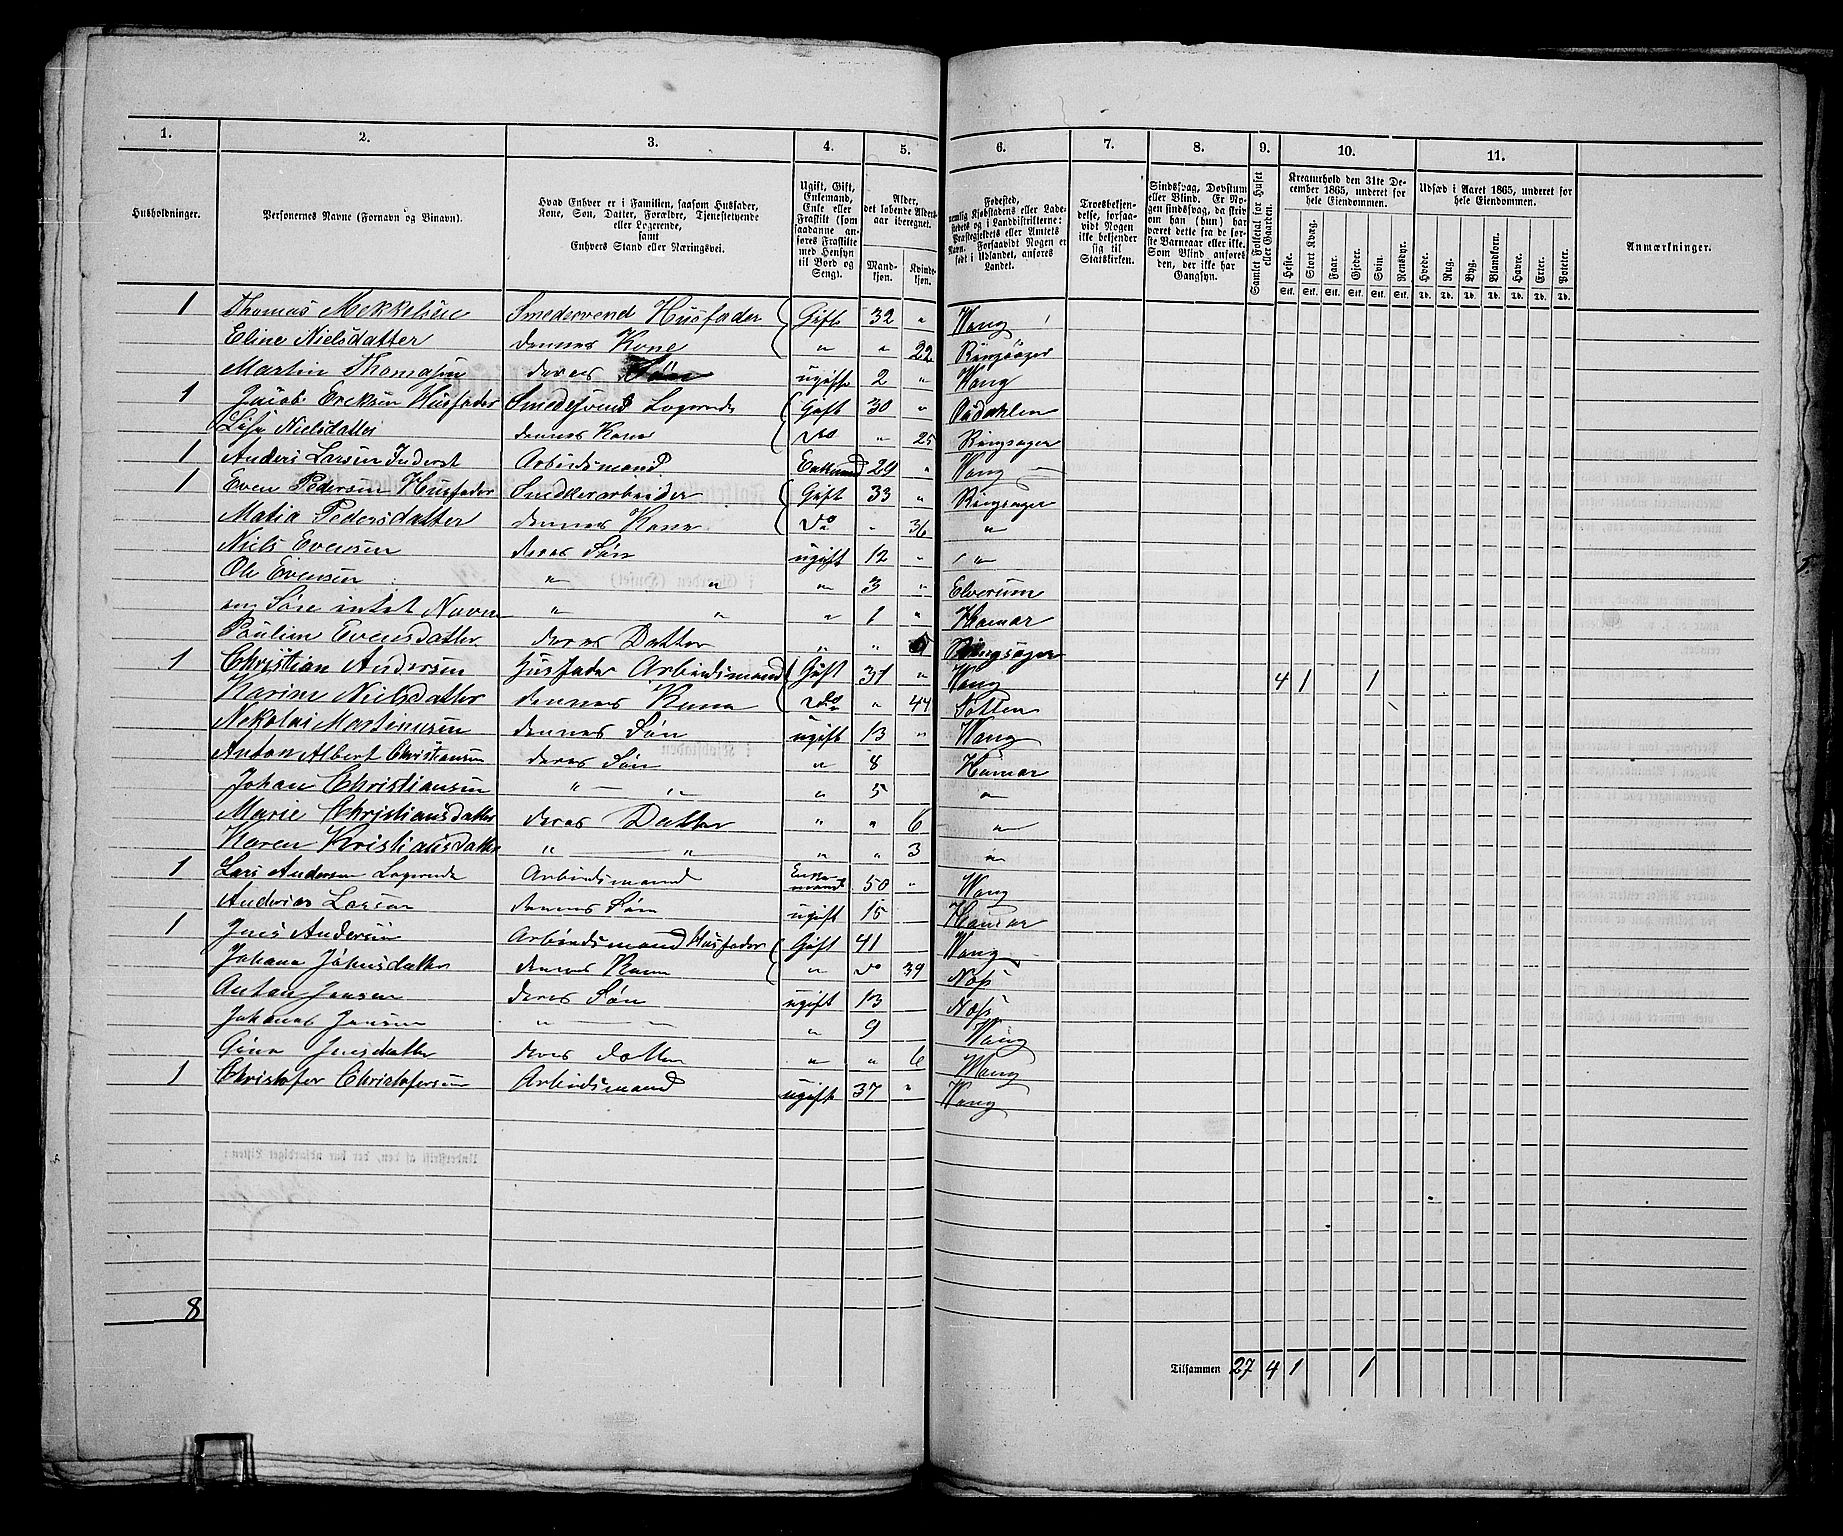 1. 2. 3. 4. 5. 6. 7. 8. 9. 10. 11.
Husholdninger.
Personernes Navne (Fornavn og Binavn).
Hvad Enhver er i Familien, saasom Husfader,
Kone, Søn, Datter, Forældre, Tjenestetyende
eller Logerende,
samt
Enhvers Stand eller Næringsvei.
Ugift, Gift,
Enkemand,
Enke eller
Fraskilt (som
saadanne an-
føres Fraskilte
med Hensyn
til Bord og
Seng).
Alder,
det løbende Alders-
aar iberegnet.
Mand-
kjøn.
Kvinde-
kjøn.
Fødested,
nemlig Kjøbstadens eller Lade-
stedets og i Landdistrikterne:
Præstegjeldets eller Amtets
Navn. Forsaavidt Nogen er
født i Udlandet, anføres
Landet.
Troesbekjen-
delse, forsaa-
vidt Nogen
ikke bekjender
sig til
Statskirken.
Sindssvag, Døvstum
eller Blind. Er No-
gen sindssvag, da skriv
om han (hun) har
været dette fra de før-
ste Barneaar eller ikke.
Som Blind anføres
den, der ikke har
Gangsyn.
Samlet Folketal for Huset
eller Gaarden.
Kreaturhold den 31te De-
cember 1865, underet for
hele Eiendommen.
Heste. Stort Kvæg. Faar. Gjeder. Svin. Rensdyr.
Stk. Stk. Stk. Stk. Stk. Stk.
Udsæd i Aaret 1865, underet for
hele Eiendommen.
Hvede. Rug. Byg. Blandkorn. Havre. Erter. Poteter.
Td. Td. Td. Td. Td. Td. Td.
Anmærkninger.
1 Thomas Mekkelsen Smedesvend Husfader Gift 32 " Wang
Eline Nielsdatter dennes Kone " " 22 Ringsager
Martin Thomasen deres Søn ugift 2 " Wang
1 Jacob Ericksen Husfader Smedesvend Logerende Gift 30 "
Lise Nielsdatter dennes Kone Do " 25 Ringsager
1 Anders Larsen Inderst Arbeidsmand Enkemand 29 " Wang
1 Even Pedersen Husfader Snedkerarbeider Gift 33 " Ringsager
Matia Pedersdatter dennes Kone Do " 36 "
Niels Evensen deres Søn ugift 12 " "
Ole Evensen " " " 3 " Elverum
en Søn intet Navn " " " 1 " Hamar
Pauline Evensdatter deres Datter " " Ringsager
1 Christian Andersen Husfader Arbeidsmand Gift 31 " Wang 4 1 1
Karine Nielsdatter dennes Kone Do " 44 Totten
Nekolai Martinusen dennes Søn ugift 13 " Wang
Anton Albert Christiansen deres Søn " 8 Hamar
Johan Christiansen " — " " 5 "
Marie Christiansdatter deres Datter " " 6 "
Karen Kristiansdatter " — " " " 3 "
1 Lars Andersen Logerende Arbeidsmand Enke-
mand 50 " Wang
Andreas Larsen dennes Søn ugift 15 Hamar
1 Jens Andersen Arbeidsmand Husfader Gift 41 Wang
Johana Johnsdatter dennes Kone " do 39 Næs
Anton Jensen deres Søn ugift 13 Næs
Johanes Jensen " — — " 9 Wang
Gina Jensdatter deres datter " " 6 Wang
1 Christofer Christofersen Arbeidsmand ugift 37 " Wang
8
Tilsammen 27 4 1 1